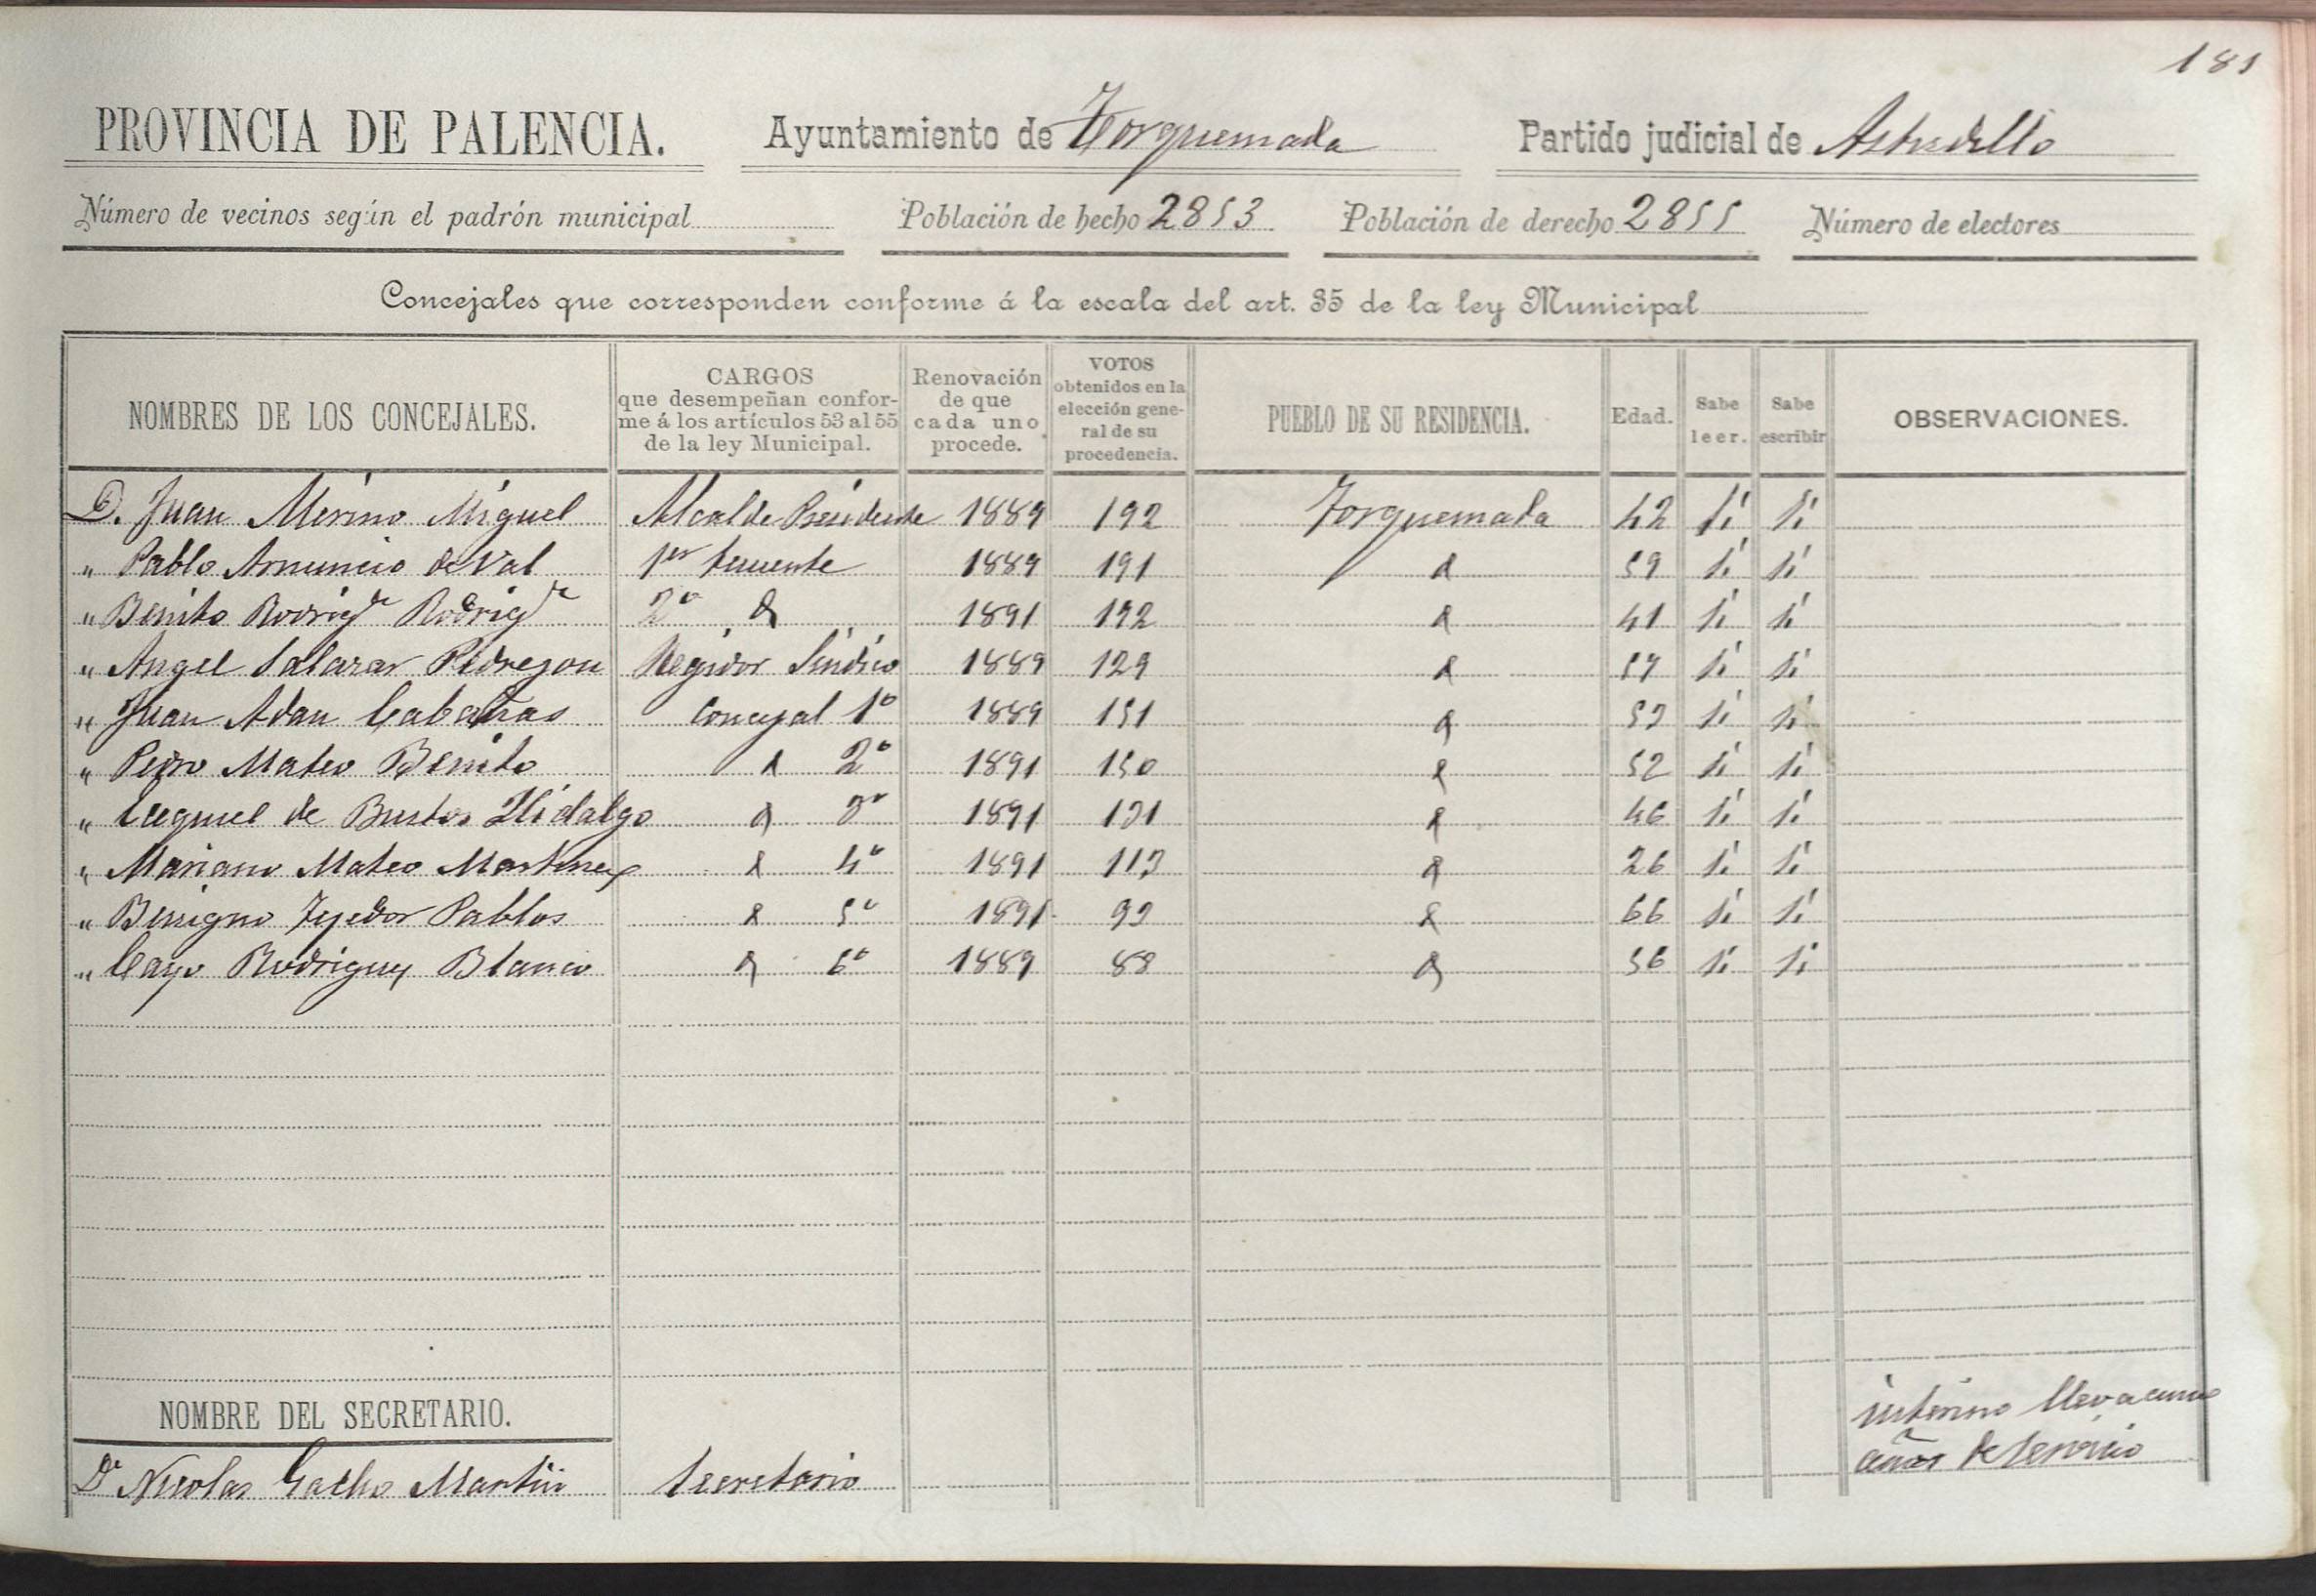 181
PROVINCIA DE PALENCIA. Ayuntamiento de Torquemada Partido judicial de Astudillo
Número de vecinos según el padrón municipal Población de hecho 2853 Población de derecho 2855 Número de electores
Concejales que corresponden conforme á la escala del art. 35 de la ley Municipal
NOMBRES DE LOS CONCEJALES. CARGOS que desempeñan conforme á los artículos 53 al 55 de la ley Municipal. Renovación de que cada uno procede. VOTOS obtenidos en la elección general de su procedencia. PUEBLO DE SU RESIDENCIA. Edad. Sabe leer. Sabe escribir OBSERVACIONES.
D. Juan Merino Miguel Alcalde Presidente 1889 192 Torquemada 42 si si
" Pablo Amuncio de Val 1er teniente 1889 191 " 59 si si
" Benito Rodrigz Rodrigz 2º " 1891 192 " 41 si si
" Angel Salazar Pedrejon Regidor Sindico 1889 129 " 57 si si
" Juan Adan Cabañas Concejal 1º 1889 151 " si si
" Pedro Mateo Benito " 2º 1891 150 " 52 si si
" de Bustos Hidalgo " 3º 1891 131 " 46 si si
" Mariano Mateo Martinez " 4º 1891 113 " 26 si si
" Benigno Tejedor Pablos " 5º 1891 93 " 66 si si
" Cayo Rodriguez Blanco " 6º 1889 88 " 56 si si
NOMBRE DEL SECRETARIO.
interino lleva
años de servicio
Dn Nicolas Martin Secretario